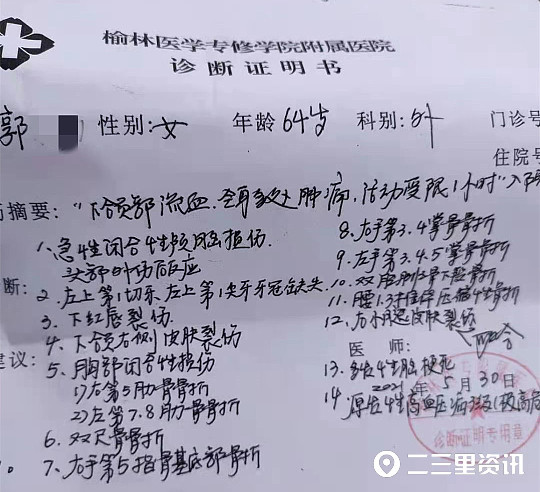 榆林医学专修学院附属医院
诊断证明书
郭 性别:女 年龄 64岁 科别:外 门诊号
住院号
摘要:"下颌部流血、全身多处肿痛,活动受限1小时"入院
1.急性闭合性颅脑损伤
头部外伤反应
断:2.左上第1切牙、左上第1尖牙牙冠缺失
3.下红唇裂伤
4.下颌右侧皮肤裂伤
建议:5.胸部闭合性损伤
1)右第5肋骨骨折
2)左第7.8肋骨骨折
6.双尺骨骨折
7.右手第5指骨基底部骨折
8.右手第3.4掌骨骨折
9.左手第3.4.5掌骨骨折
10.双胫骨下段骨折
11.腰1.3椎体压缩性骨折
12.右小腿皮肤裂伤
医师:
13.多发性脑梗死
2021年5月30
14.原发性高血压病3级(极高危
诊断证明专用章
二三里资讯